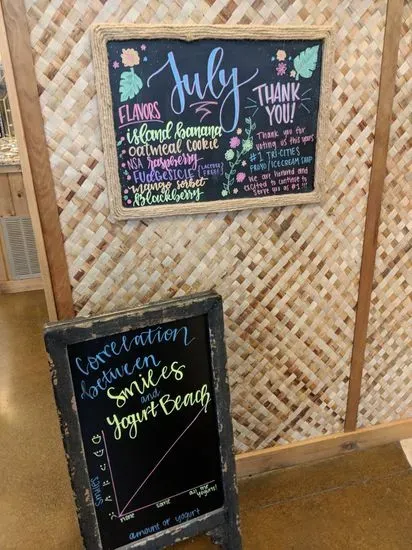 July
FLAVORS
island banana
oatmeal cookie
NSA raspberry
FUDGESICLE [LACTOSE FREE]
mango sorbet
Blackberry
THANK
YOU!
Thank you for
voting us this years
#1 TRI-CITIES
FROYO/ICE CREAM SHOP
We are honored and
excited to continue to
serve you as #1!!!
Correlation
between
Smiles
and
Yogurt Beach
Smiles
none
some
all the yogurt!
amount of yogurt